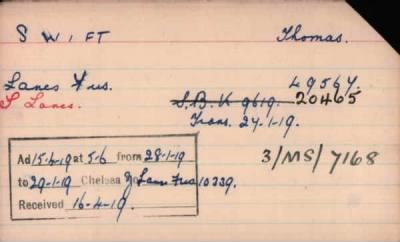 SWIFT Thomas.
Lancs Fus. 49567.
S Lancs. S.B.K 9619. 20465
Trans. 27.1.19.
Ad 15-4-19 at 5/6 from 28-1-19
3/MS/7168
to 29-1-19 Chelsea Lanc Fus 10339.
Received 16-4-19.